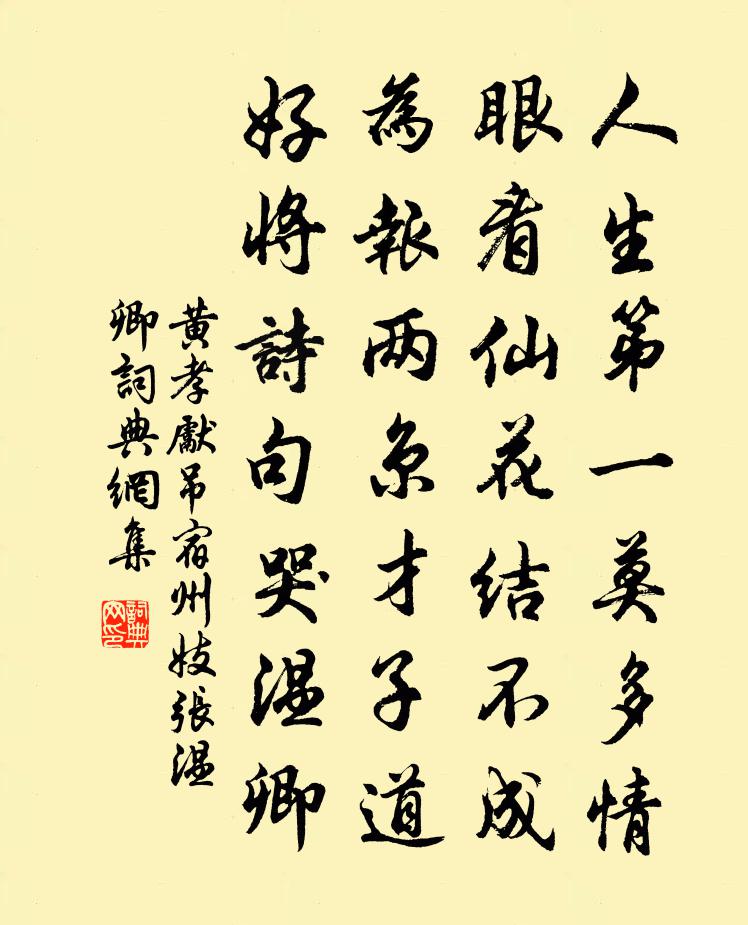 人生第一莫多情
眼看仙花结不成
為報两京才子道
好将詩句哭温卿
黄孝獻吊宿州妓張温
卿詞典網集
詞典网印